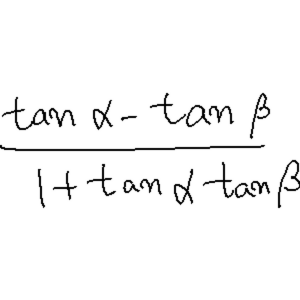 tan α - tan β
1 + tan α tan β